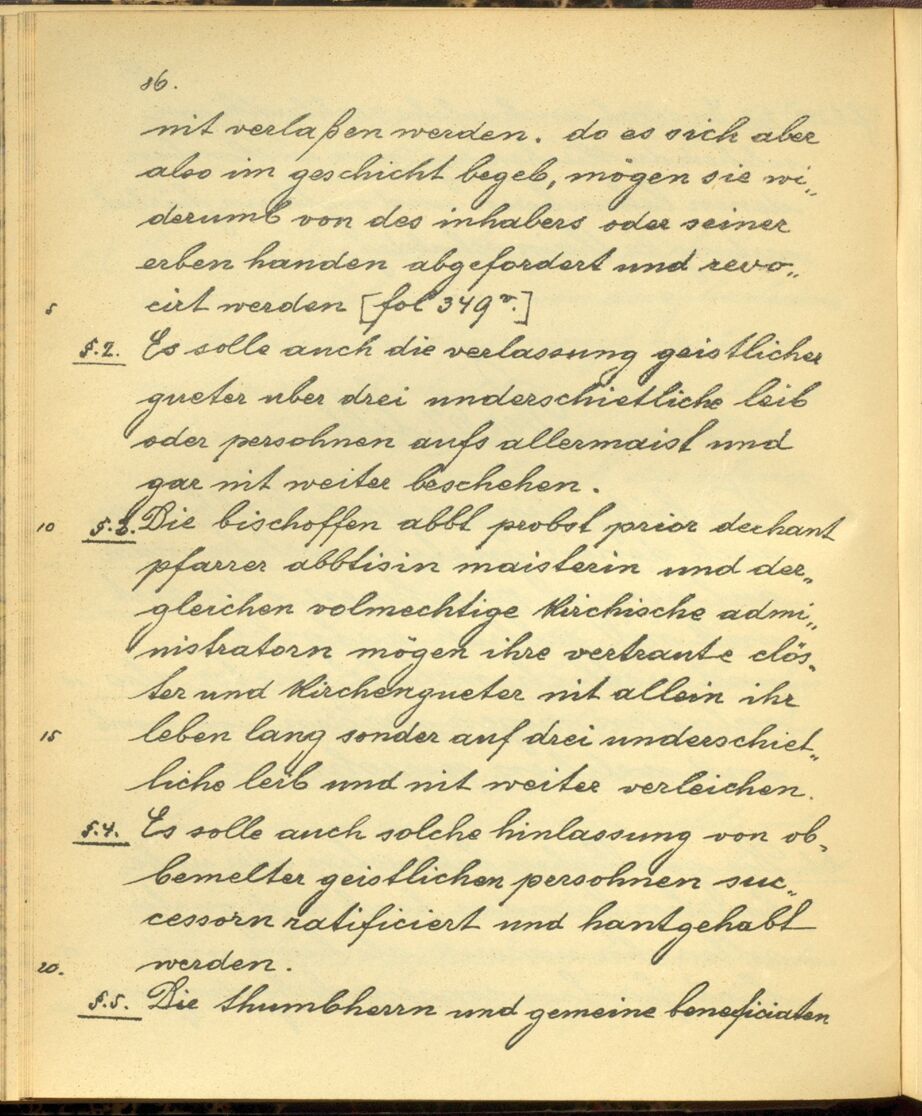 86.
nit verlaßen werden. do es sich aber
also im geschicht begeb, mögen sie wi„
derumb von des inhabers oder seiner
erben handen abgefordert und revo„
5 cirt werden [fol 349v.]
§.2. Es solle auch die verlassung geistlicher
gueter uber drei underschietliche leib
oder persohnen aufs allermaist und
gar nit weiter beschehen.
10 §.3. Die bischoffen abbt probst prior dechant
pfarrer abbtisin maisterin und der„
gleichen volmechtige kirchische admi„
nistratorn mögen ihre vertraute clös„
ter und kirchengueter nit allein ihr
15 leben lang sonder auf drei underschiet„
liche leib und nit weiter verleichen.
§.4. Es solle auch solche hinlassung von ob„
bemelter geistlichen persohnen suc„
cessorn ratificiert und hantgehabt
20. werden.
§.5. Die thumbherrn und gemeine beneficiaten